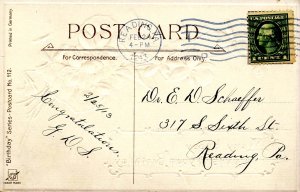 POST CARD
For Correspondence.
For Address Only.
Printed in Germany
"Birthday" Series-Postcard No. 112.
READING
FEB
4-PM
1 CENT 1
2/25/13
Congratulations,
G.D.S.
Dr. E. D. Schaeffer
317 S. Sixth St.
Reading, Pa.